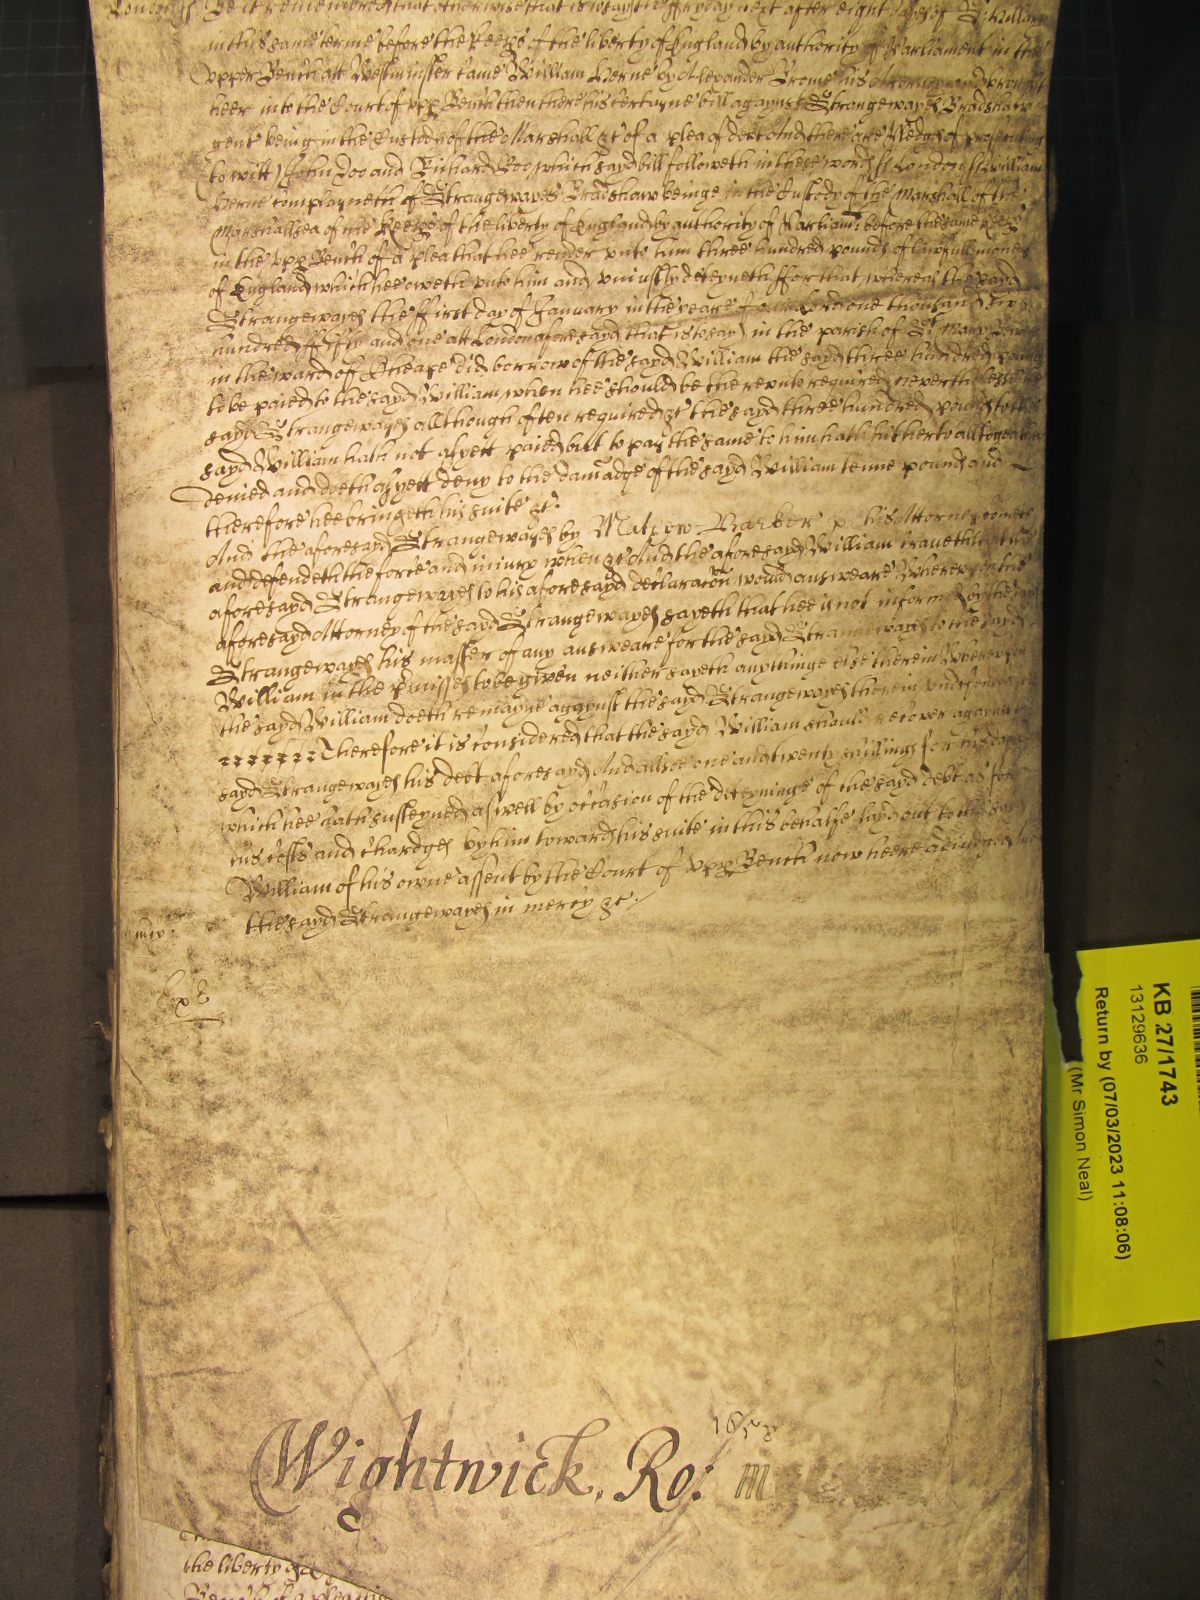 London ss Be it remembred that otherwise that is to say the ffryday next after eight dayes of St Hillary
in this same terme before the Keeps of the liberty of England by authority of Parliament in the
Upper Bench att Westminster came William Herne by Alexander Brome his Attorney and brought
heer into the Court of upp Bench then there his certayne bill agaynst Strangewayes Bradshaw
gent being in the Custody of the Marshall &c of a plea of debt And there are pledges of prosecuting
to witt John Doo and Richard Roo which sayd bill followeth in these words ss London ss William
Herne complayneth of Strangewayes Bradshaw beinge in the Custody of the Marshall of the
Marshallsea of the Keeps of the liberty of England by authority of Parliamt before the same Keeps
in the upp Bench of a plea that hee render unto him three hundred pounds of lawfull money
of England which hee oweth unto him and uniustly deteyneth ffor that whereas the sayd
Strangewayes the ffirst day of January in the yeare of our Lord one thousand six
hundred ffifty and one att London aforesayd that is to say in the parish of St Mary
in the ward of Cheape did borrow of the sayd William the sayd three hundred pounds
to be paied to the sayd William when hee should be thereunto required nevertheless the
sayd Strangewayes allthough often required &c the sayd three hundred pounds to the
sayd William hath not as yett paied but to pay the same to him hath hitherto alltogeather
denied and doeth as yett deny to the damadge of the sayd William tenne pounds and
therefore hee bringeth his suite &c
And the aforesayd Strangewayes by Mathew Barker his Attorney cometh
and defendeth the force and iniury when &c And the aforesayd William craveth that the
aforesayd Strangewayes to his aforesayd declaracon would answeare Whereupon the
aforesayd Attorney of the sayd Strangewayes sayeth that hee is not informed by the sayd
Strangewayes his master of any answeare for the sayd Strangewayes to the sayd
William in the pmisses to be given neither sayeth anythinge else therein Whereupon
the sayd William doeth remayne agaynst the sayd Strangewayes therein undefended
Therefore it is considered that the sayd William should recover against the
sayd Strangewayes his debt aforesayd And allsoe one and twenty shillings for his damages
which hee hath susteyned as well by occasion of the deteyninge of the sayd debt as for
his costs and chardges by him towards his suite in this behalfe layd out to the sayd
William of his owne assent by the Court of upp Bench now heere adiudged And
the sayd Strangewayes in mercy &c
mcy
Wightwick. Ro: 1658
the liberty of
KB 27/1743
13129636
Return by (07/03/2023 11:08:06)
(Mr Simon Neal)